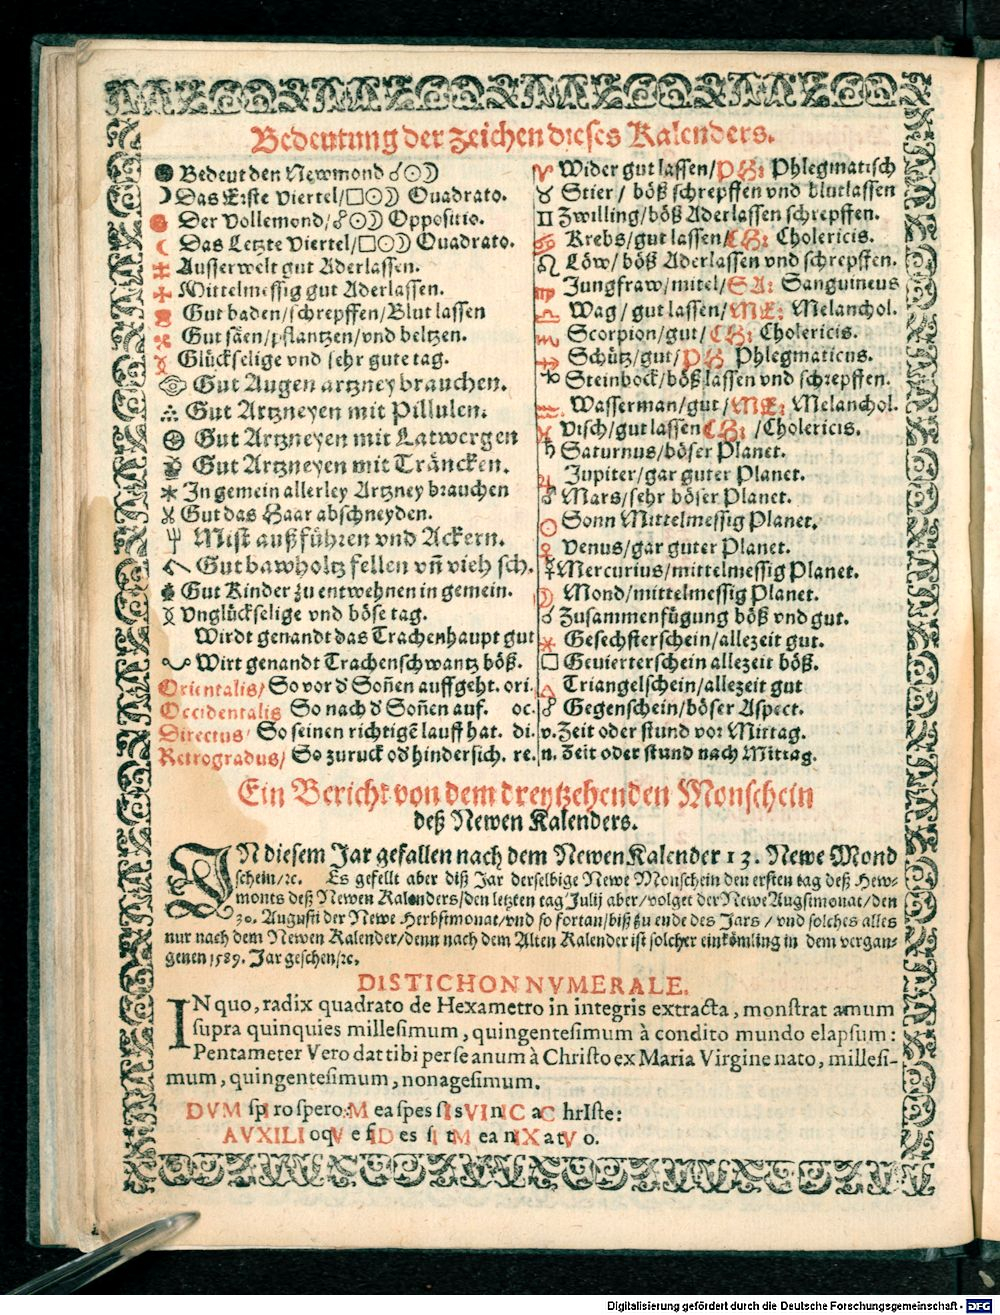 Bedeutung der zeichen dieses Kalenders.
● Bedeut den Newmond ☌☉☽
☽ Das Erste Viertel/□☉☽ Quadrato.
Der Vollemond/☍☉☽ Oppositio.
☾ Das Letzte Viertel/□☉☽ Quadrato.
Ausserwelt gut Aderlassen.
Mittelmessig gut Aderlassen.
Gut baden/schrepffen/Blut lassen
Gut säen/pflantzen/vnd beltzen.
Glückselige vnd sehr gute tag.
Gut Augen artzney brauchen.
Gut Artzneyen mit Pillulen.
Gut Artzneyen mit Latwergen
Gut Artzneyen mit Träncken.
In gemein allerley Artzney brauchen
Gut das Haar abschneyden.
Mist außführen vnd Ackern.
Gut bawholtz fellen vñ vieh sch.
Gut Kinder zu entwehnen in gemein.
Vnglückselige vnd böse tag.
Wirdt genandt das Trachenhaupt gut
Wirt genandt Trachenschwantz böß.
Orientalis/ So vor d Soñen auffgeht. ori.
Occidentalis So nach d Soñen auf. oc.
Directus/ So seinen richtigẽ lauff hat. di.
Retrogradus/ So zuruck od hindersich. re.
♈ Wider gut lassen/PH: Phlegmatisch
♉ Stier / böß schrepffen vnd blutlassen
♊ Zwilling/böß Aderlassen schrepffen.
♋ Krebs/gut lassen/CH: Cholericis.
♌ Löw/ böß Aderlassen vnd schrepffen.
♍ Jungfraw/mitel/SA: Sanguineus
♎ Wag / gut lassen/ME: Melanchol.
♏ Scorpion/gut/ CH: Cholericis.
♐ Schütz/gut/PH Phlegmaticus.
♑ Steinbock/böß lassen vnd schrepffen.
♒ Wasserman/gut /ME: Melanchol.
♓ Visch/gut lassen CH: /Cholericis.
♄ Saturnus/böser Planet.
♃ Jupiter/gar guter Planet.
♂ Mars/sehr böser Planet.
☉ Sonn Mittelmessig Planet.
♀ Venus/gar guter Planet.
☿ Mercurius/mittelmessig Planet.
☽ Mond/mittelmessig Planet.
☌ Zusammenfügung böß vnd gut.
⚹ Gesechsterschein/allezeit gut.
□ Gevierterschein allezeit böß.
△ Triangelschein/allezeit gut
☍ Gegenschein/böser Aspect.
v. Zeit oder stund vor Mittag.
n. Zeit oder stund nach Mittag.
Ein Bericht von dem dreytzehenden Monschein
deß Newen Kalenders.
IN diesem Jar gefallen nach dem Newen Kalender 13. Newe Mond
schein/ꝛc. Es gefellt aber diß Jar derselbige Newe Monschein den ersten tag deß Hew-
monts deß Newen Kalenders/den letzten tag Julij aber/volget der Newe Augstmonat/den
30. Augusti der Newe Herbstmonat/vnd so fortan/biß zu ende des Jars / vnd solches alles
nur nach dem Newen Kalender/denn nach dem Alten Kalender ist solcher einkömling in dem vergan-
genen 1589. Jar geschen/ꝛc.
DISTICHON NVMERALE.
IN quo, radix quadrato de Hexametro in integris extracta, monstrat annum
supra quinquies millesimum, quingentesimum à condito mundo elapsum:
Pentameter Vero dat tibi per se anum à Christo ex Maria Virgine nato, millesi-
mum, quingentesimum, nonagesimum.
DVM spIro spero: Mea spes sIs VInCaC hrIste:
AVXILIoqVe fIDes sIt Mea nIXa tVo.
Digitalisierung gefördert durch die Deutsche Forschungsgemeinschaft - DFG